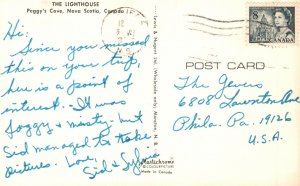 THE LIGHTHOUSE
Peggy's Cove, Nova Scotia, Canada
Hi:
Since you missed
this on your trip,
here is a point of
interest. It was
foggy - misty - but
Sid managed to take
pictures. Love,
Sid & Sylvia
8
CANADA
POST CARD
The Gevers
6808 Lawnton Ave
Phila. Pa. 19126
U.S.A.
Made in Canada